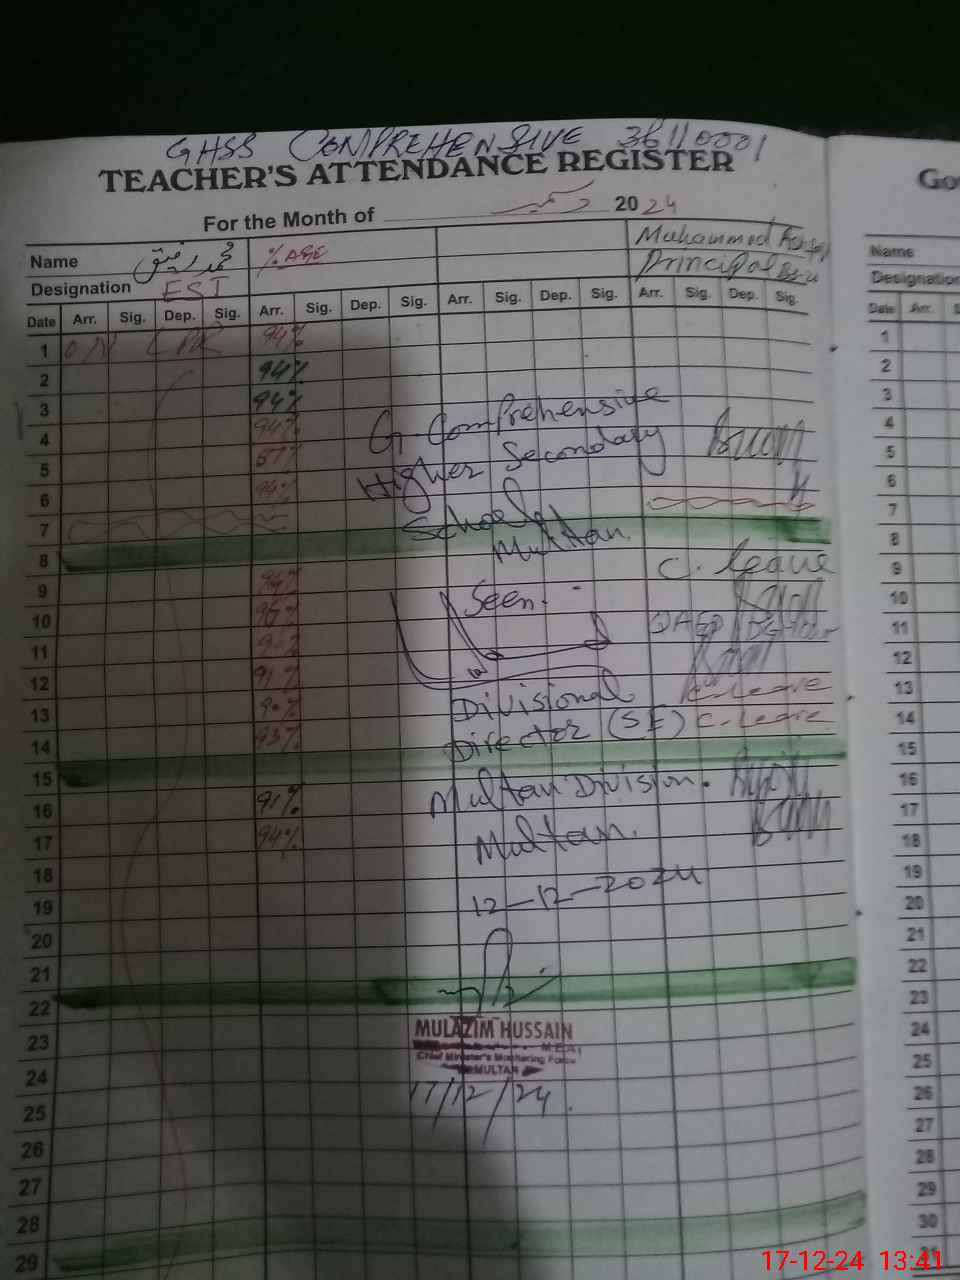 GHSS COMPREHENSIVE 36110001
TEACHER'S ATTENDANCE REGISTER
For the Month of دسمبر 2024
Name محمد رفیق % AGE Muhammad
Designation EST Principal
Date Arr. Sig. Dep. Sig. Arr. Sig. Dep. Sig. Arr. Sig. Dep. Sig. Arr. Sig. Dep. Sig.
1 ON LPR 94%
2 94%
3 94%
4 94% G. Comprehensive
5 87% Higher Secondary
6 94%
7 School
8 Multan.
9 C. leave
10 Seen.
11
12 91%
13 Divisional C-Leave
14 93% Director (SE) C-Leave
15
16 91% Multan Division.
17 94% Multan.
18
19 12-12-2024
20
21
22
23 MULAZIM HUSSAIN
M.E.A
Chief Minister's Monitoring Force
24 MULTAN
25 17/12/24.
26
27
28
29
Go
Name
Designation
Date Arr.
1
2
3
4
5
6
7
8
9
10
11
12
13
14
15
16
17
18
19
20
21
22
23
24
25
26
27
28
29
30
31
17-12-24 13:41